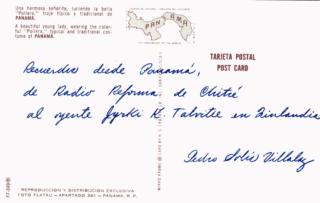 Una hermosa señorita, luciendo la bella
"Pollera," traje típico y tradicional de
PANAMA.
A beautiful young lady, wearing the color-
ful "Pollera," typical and traditional cos-
tume of PANAMA.
PANAMA
TARJETA POSTAL
POST CARD
Recuerdos desde Panamá,
de Radio Reforma de Chitré
al oyente Jyrki K Talvitie en Finlandia
Pedro Solis Villalaz
REPRODUCCION Y DISTRIBUCION EXCLUSIVA
FOTO FLATAU - APARTADO 361 - PANAMA, R. P.